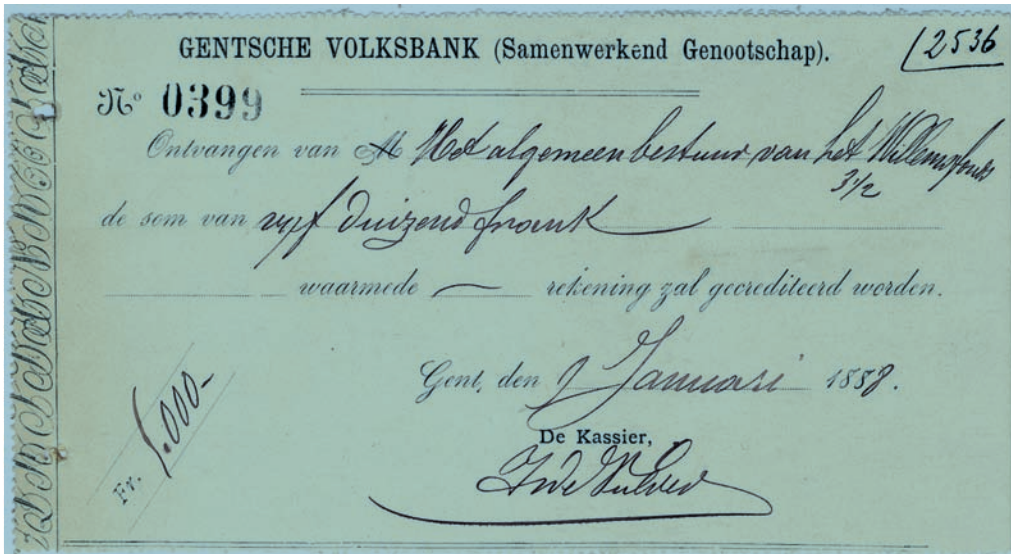 GENTSCHE VOLKSBANK (Samenwerkend Genootschap).
(2536
No 0399
Ontvangen van M Het algemeen bestuur van het Willemsfonds
3 1/2
de som van vijf duizend frank
waarmede rekening zal gecrediteerd worden.
Gent, den Januari 1888.
Fr. 5.000-
De Kassier,